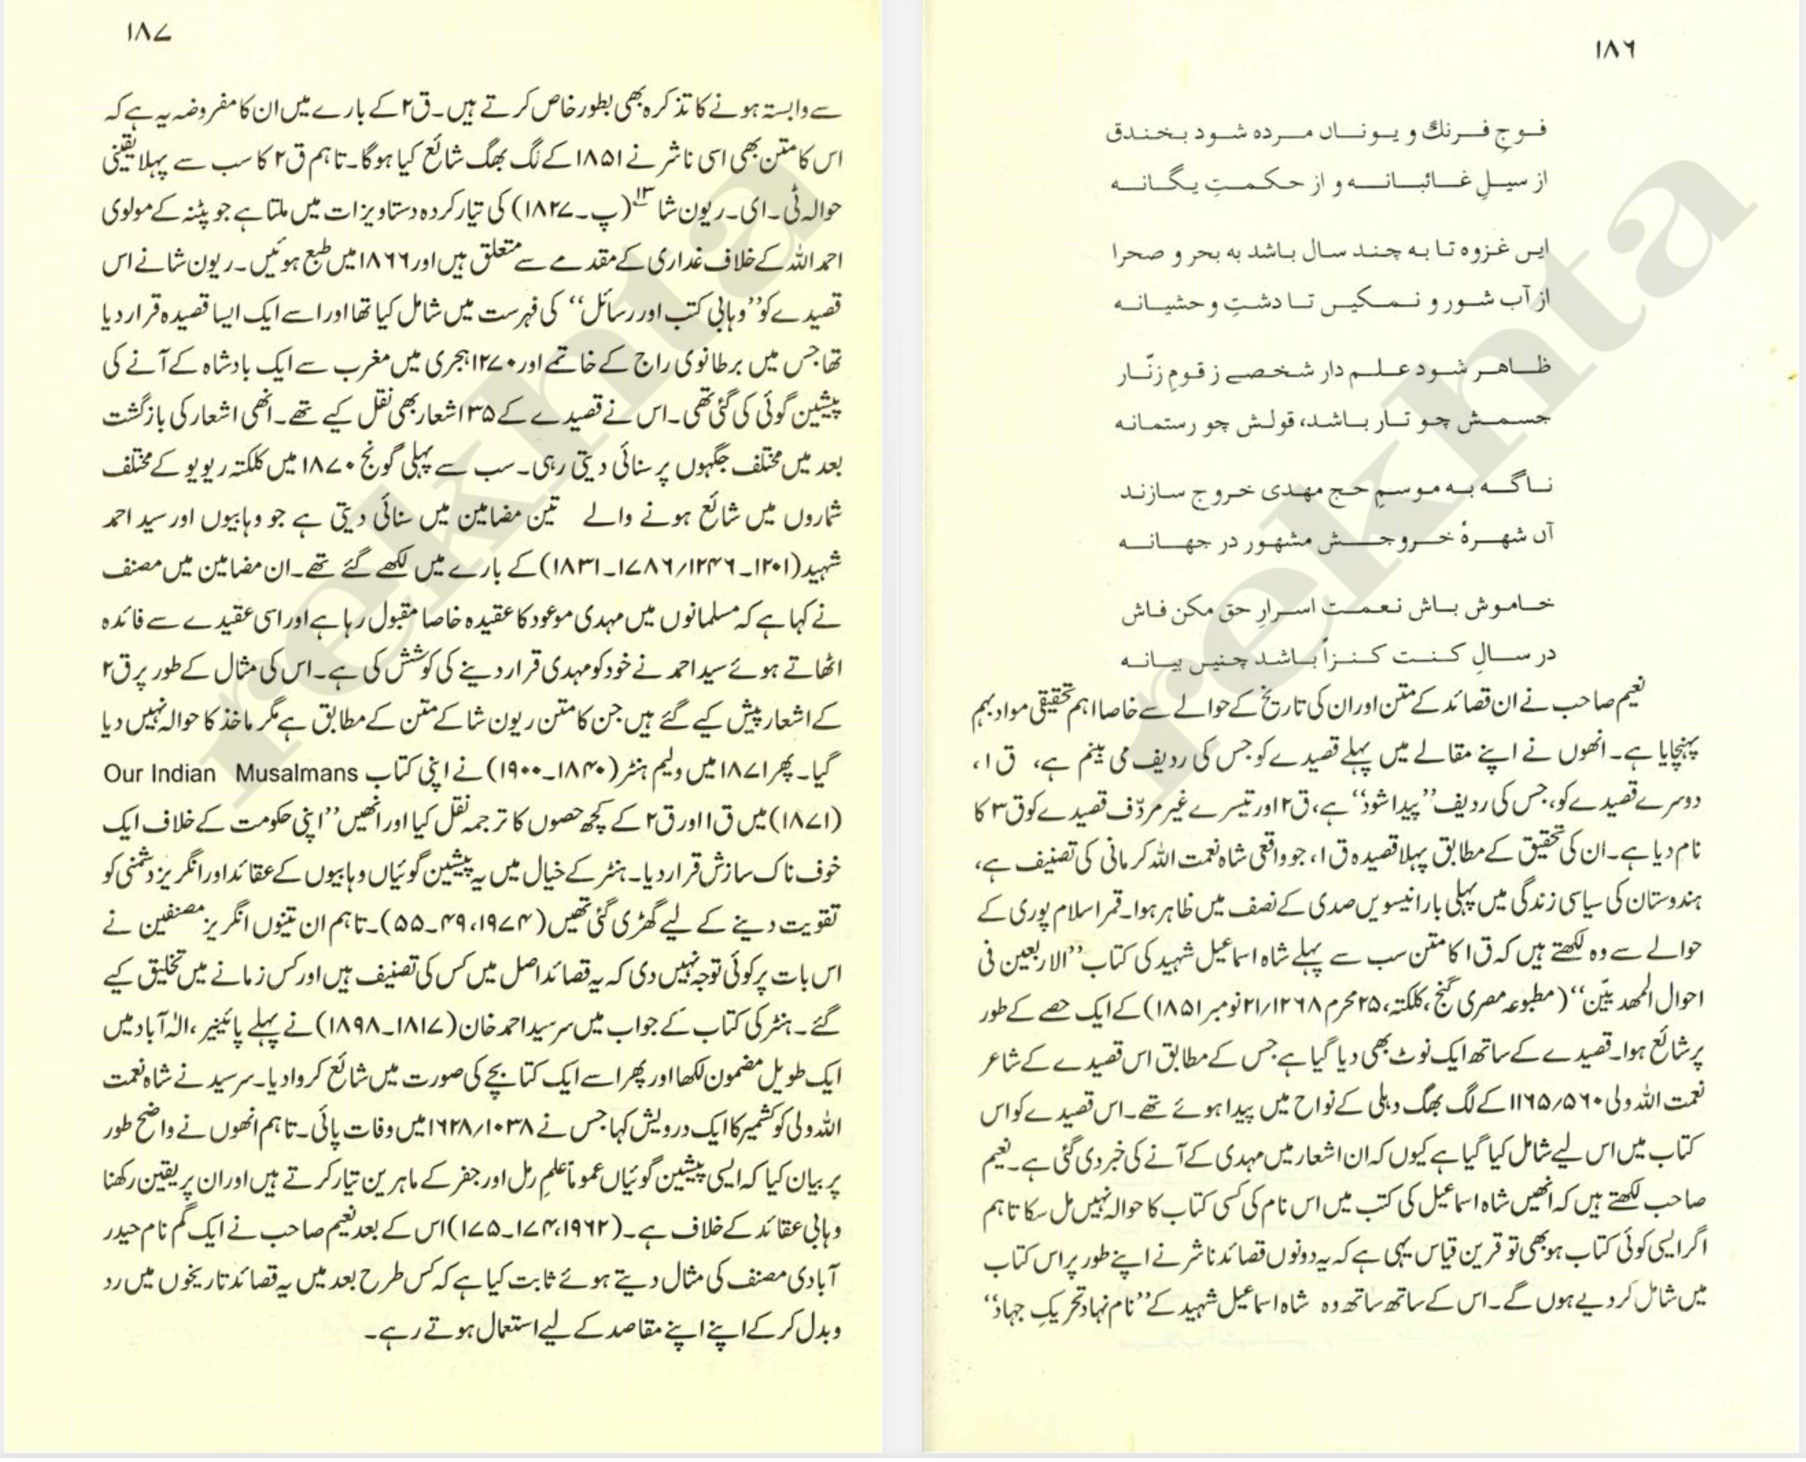 ۱۸۶
فوجِ فرنگ و یوناں مردہ شود بخندق
از سیلِ غائبانہ و از حکمتِ یگانہ
ایں غزوہ تا بہ چند سال باشد بہ بحر و صحرا
از آب شور و نمکیں تا دشتِ وحشیانہ
ظاہر شود علم دار شخصے ز قومِ زنّار
جسمش چو تار باشد، قولش چو رستمانہ
ناگہ بہ موسمِ حج مہدی خروج سازند
آں شہرۂ خروجش مشہور در جہانہ
خاموش باش نعمت اسرارِ حق مکن فاش
در سالِ کنت کنزاً باشد چنیں بیانہ
نعیم صاحب نے ان قصائد کے متن اور ان کی تاریخ کے حوالے سے خاصا اہم تحقیقی مواد بہم
پہنچایا ہے۔ انھوں نے اپنے مقالے میں پہلے قصیدے کو جس کی ردیف می بینم ہے، ق۱،
دوسرے قصیدے کو، جس کی ردیف ’’پیدا شود‘‘ ہے، ق۲ اور تیسرے غیر مردّف قصیدے کو ق۳ کا
نام دیا ہے۔ ان کی تحقیق کے مطابق پہلا قصیدہ ق۱، جو واقعی شاہ نعمت اللہ کرمانی کی تصنیف ہے،
ہندوستان کی سیاسی زندگی میں پہلی بار انیسویں صدی کے نصف میں ظاہر ہوا۔ قمر اسلام پوری کے
حوالے سے وہ لکھتے ہیں کہ ق۱ کا متن سب سے پہلے شاہ اسماعیل شہید کی کتاب ’’الاربعین فی
احوال المھدیّین‘‘ (مطبوعہ مصری گنج، کلکتہ، ۲۵ محرم ۱۲۶۸/۲۱ نومبر ۱۸۵۱) کے ایک حصے کے طور
پر شائع ہوا۔ قصیدے کے ساتھ ایک نوٹ بھی دیا گیا ہے جس کے مطابق اس قصیدے کے شاعر
نعمت اللہ ولی ۵۶۰/۱۱۶۵ کے لگ بھگ دہلی کے نواح میں پیدا ہوئے تھے۔ اس قصیدے کو اس
کتاب میں اس لیے شامل کیا گیا ہے کیوں کہ ان اشعار میں مہدی کے آنے کی خبر دی گئی ہے۔ نعیم
صاحب لکھتے ہیں کہ انھیں شاہ اسماعیل کی کتب میں اس نام کی کسی کتاب کا حوالہ نہیں مل سکا تاہم
اگر ایسی کوئی کتاب ہو بھی تو قرین قیاس یہی ہے کہ یہ دونوں قصائد ناشر نے اپنے طور پر اس کتاب
میں شامل کر دیے ہوں گے۔ اس کے ساتھ ساتھ وہ شاہ اسماعیل شہید کے ’’نام نہاد تحریکِ جہاد‘‘
۱۸۷
سے وابستہ ہونے کا تذکرہ بھی بطور خاص کرتے ہیں۔ ق۲ کے بارے میں ان کا مفروضہ یہ ہے کہ
اس کا متن بھی اسی ناشر نے ۱۸۵۱ کے لگ بھگ شائع کیا ہوگا۔ تاہم ق۲ کا سب سے پہلا یقینی
حوالہ ٹی۔ ای۔ ریون شا۱۳ (پ۔ ۱۸۲۷) کی تیار کردہ دستاویزات میں ملتا ہے جو پٹنہ کے مولوی
احمد اللہ کے خلاف غداری کے مقدمے سے متعلق ہیں اور ۱۸۶۶ میں طبع ہوئیں۔ ریون شا نے اس
قصیدے کو ’’وہابی کتب اور رسائل‘‘ کی فہرست میں شامل کیا تھا اور اسے ایک ایسا قصیدہ قرار دیا
تھا جس میں برطانوی راج کے خاتمے اور ۱۲۷۰ ہجری میں مغرب سے ایک بادشاہ کے آنے کی
پیشین گوئی کی گئی تھی۔ اس نے قصیدے کے ۳۵ اشعار بھی نقل کیے تھے۔ انھی اشعار کی بازگشت
بعد میں مختلف جگہوں پر سنائی دیتی رہی۔ سب سے پہلی گونج ۱۸۷۰ میں کلکتہ ریویو کے مختلف
شماروں میں شائع ہونے والے تین مضامین میں سنائی دیتی ہے جو وہابیوں اور سید احمد
شہید (۱۲۰۱۔۱۲۴۶/۱۷۸۶۔۱۸۳۱) کے بارے میں لکھے گئے تھے۔ ان مضامین میں مصنف
نے کہا ہے کہ مسلمانوں میں مہدی موعود کا عقیدہ خاصا مقبول رہا ہے اور اسی عقیدے سے فائدہ
اٹھاتے ہوئے سید احمد نے خود کو مہدی قرار دینے کی کوشش کی ہے۔ اس کی مثال کے طور پر ق۲
کے اشعار پیش کیے گئے ہیں جن کا متن ریون شا کے متن کے مطابق ہے مگر ماخذ کا حوالہ نہیں دیا
گیا۔ پھر ۱۸۷۱ میں ولیم ہنٹر (۱۸۴۰۔۱۹۰۰) نے اپنی کتاب Our Indian Musalmans
(۱۸۷۱) میں ق۱ اور ق۲ کے کچھ حصوں کا ترجمہ نقل کیا اور انھیں ’’اپنی حکومت کے خلاف ایک
خوف ناک سازش قرار دیا۔ ہنٹر کے خیال میں یہ پیشین گوئیاں وہابیوں کے عقائد اور انگریز دشمنی کو
تقویت دینے کے لیے گھڑی گئی تھیں (۱۹۷۴، ۴۹۔۵۵)۔ تاہم ان تینوں انگریز مصنفین نے
اس بات پر کوئی توجہ نہیں دی کہ یہ قصائد اصل میں کس کی تصنیف ہیں اور کس زمانے میں تخلیق کیے
گئے۔ ہنٹر کی کتاب کے جواب میں سر سید احمد خان (۱۸۱۷۔۱۸۹۸) نے پہلے پائینیر، الہٰ آباد میں
ایک طویل مضمون لکھا اور پھر اسے ایک کتابچے کی صورت میں شائع کروا دیا۔ سر سید نے شاہ نعمت
اللہ ولی کو کشمیر کا ایک درویش کہا جس نے ۱۰۳۸/۱۶۲۸ میں وفات پائی۔ تاہم انھوں نے واضح طور
پر بیان کیا کہ ایسی پیشین گوئیاں عموماً علمِ رمل اور جفر کے ماہرین تیار کرتے ہیں اور ان پر یقین رکھنا
وہابی عقائد کے خلاف ہے۔ (۱۹۶۲، ۱۷۴۔۱۷۵) اس کے بعد نعیم صاحب نے ایک گم نام حیدر
آبادی مصنف کی مثال دیتے ہوئے ثابت کیا ہے کہ کس طرح بعد میں یہ قصائد تاریخوں میں رد
و بدل کر کے اپنے اپنے مقاصد کے لیے استعمال ہوتے رہے۔
rekhta
rekhta